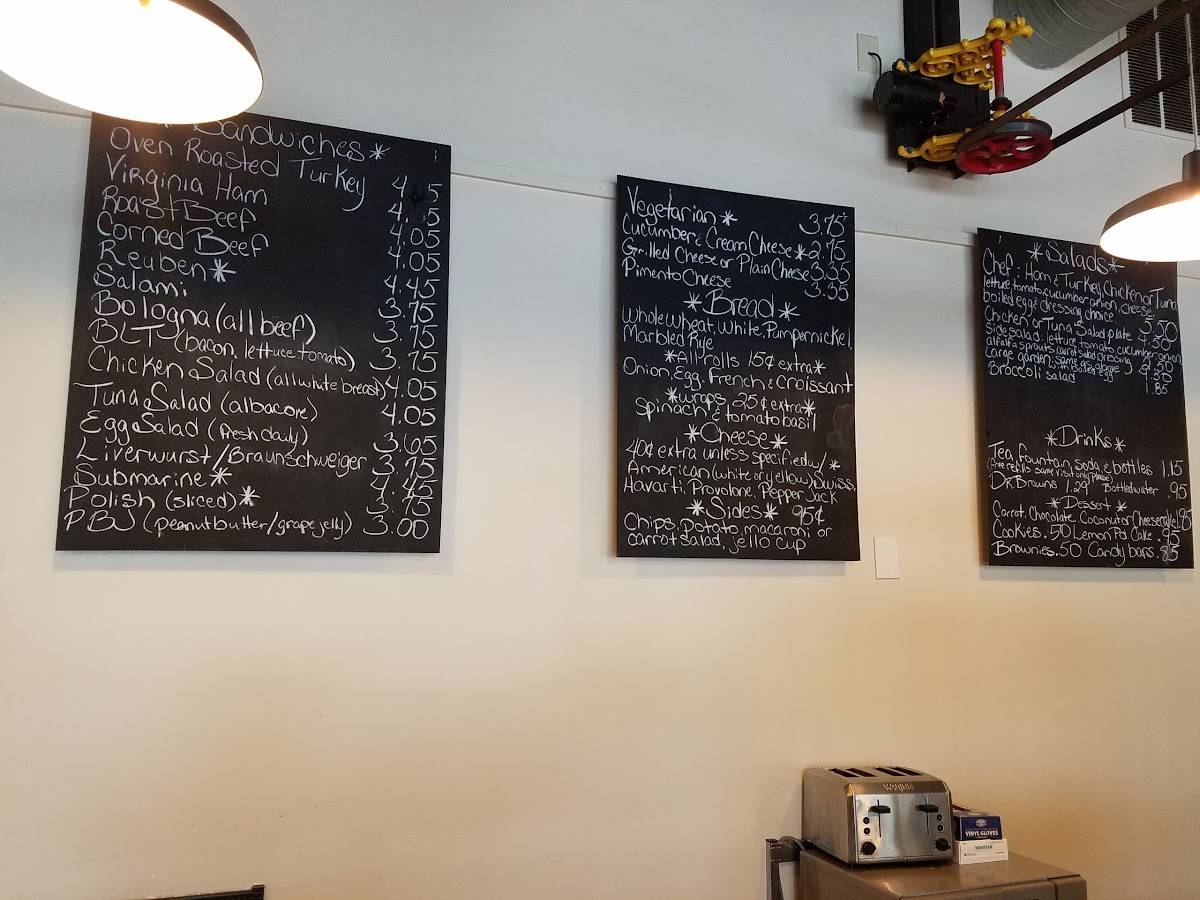 Sandwiches*
Oven Roasted Turkey 4.05
Virginia Ham 4.05
Roast Beef 4.05
Corned Beef 4.05
Reuben* 4.45
Salami 3.75
Bologna (all beef) 3.75
BLT (bacon, lettuce tomato) 3.75
Chicken Salad (all white breast) 4.05
Tuna Salad (albacore) 4.05
Egg Salad (fresh daily) 3.65
Liverwurst/Braunschweiger 3.75
Submarine* 4.45
Polish (sliced)* 3.75
PBJ (peanut butter/grape jelly) 3.00
Vegetarian* 3.75
Cucumber & Cream Cheese* 2.75
Grilled Cheese or Plain Cheese 3.35
Pimento Cheese 3.35
*Bread*
Whole Wheat, White, Pumpernickel,
Marbled Rye
*All rolls 15¢ extra*
Onion, Egg, French & Croissant
*wraps 25¢ extra*
Spinach & tomato basil
*Cheese*
40¢ extra unless specified w/*
American (white or yellow) Swiss,
Havarti, Provolone, Pepper Jack
*Sides* 95¢
Chips, potato, macaroni or
carrot salad, jello cup
*Salads*
Chef: Ham & Turkey, Chicken or Tuna
lettuce, tomato, cucumber, onion, cheese
boiled egg & dressing choice 5.50
Chicken or Tuna Salad plate 4.50
Side salad, lettuce, tomato, cucumber, onion
alfalfa sprouts, carrot salad dressing
Large garden, same as above
with boiled egg
Broccoli salad 1.85
*Drinks*
Tea, fountain, soda & bottles 1.15
(Free refills same visit only please)
DR. Browns 1.29 Bottled water .95
*Dessert*
Carrot, Chocolate Coconut or Cheesecake
Cookies .50 Lemon Pd Cake .95
Brownies .50 Candy bars .85
WARING
VINYL GLOVES